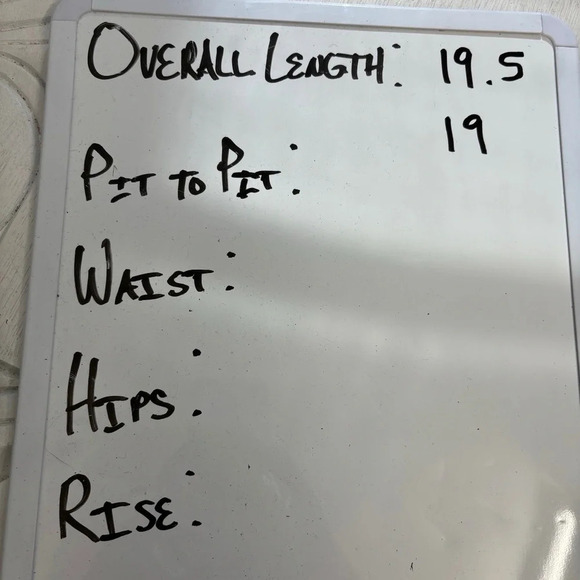 OVERALL LENGTH: 19.5
PIT TO PIT: 19
WAIST:
HIPS:
RISE: